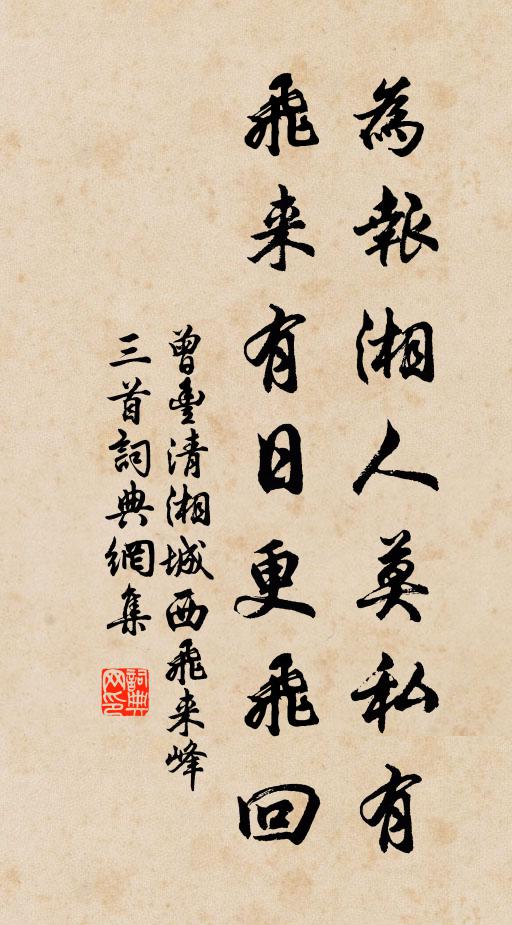 為報湘人莫私有
飛来有日更飛回
曾豐清湘城西飛来峰
三首詞典網集
詞典網印